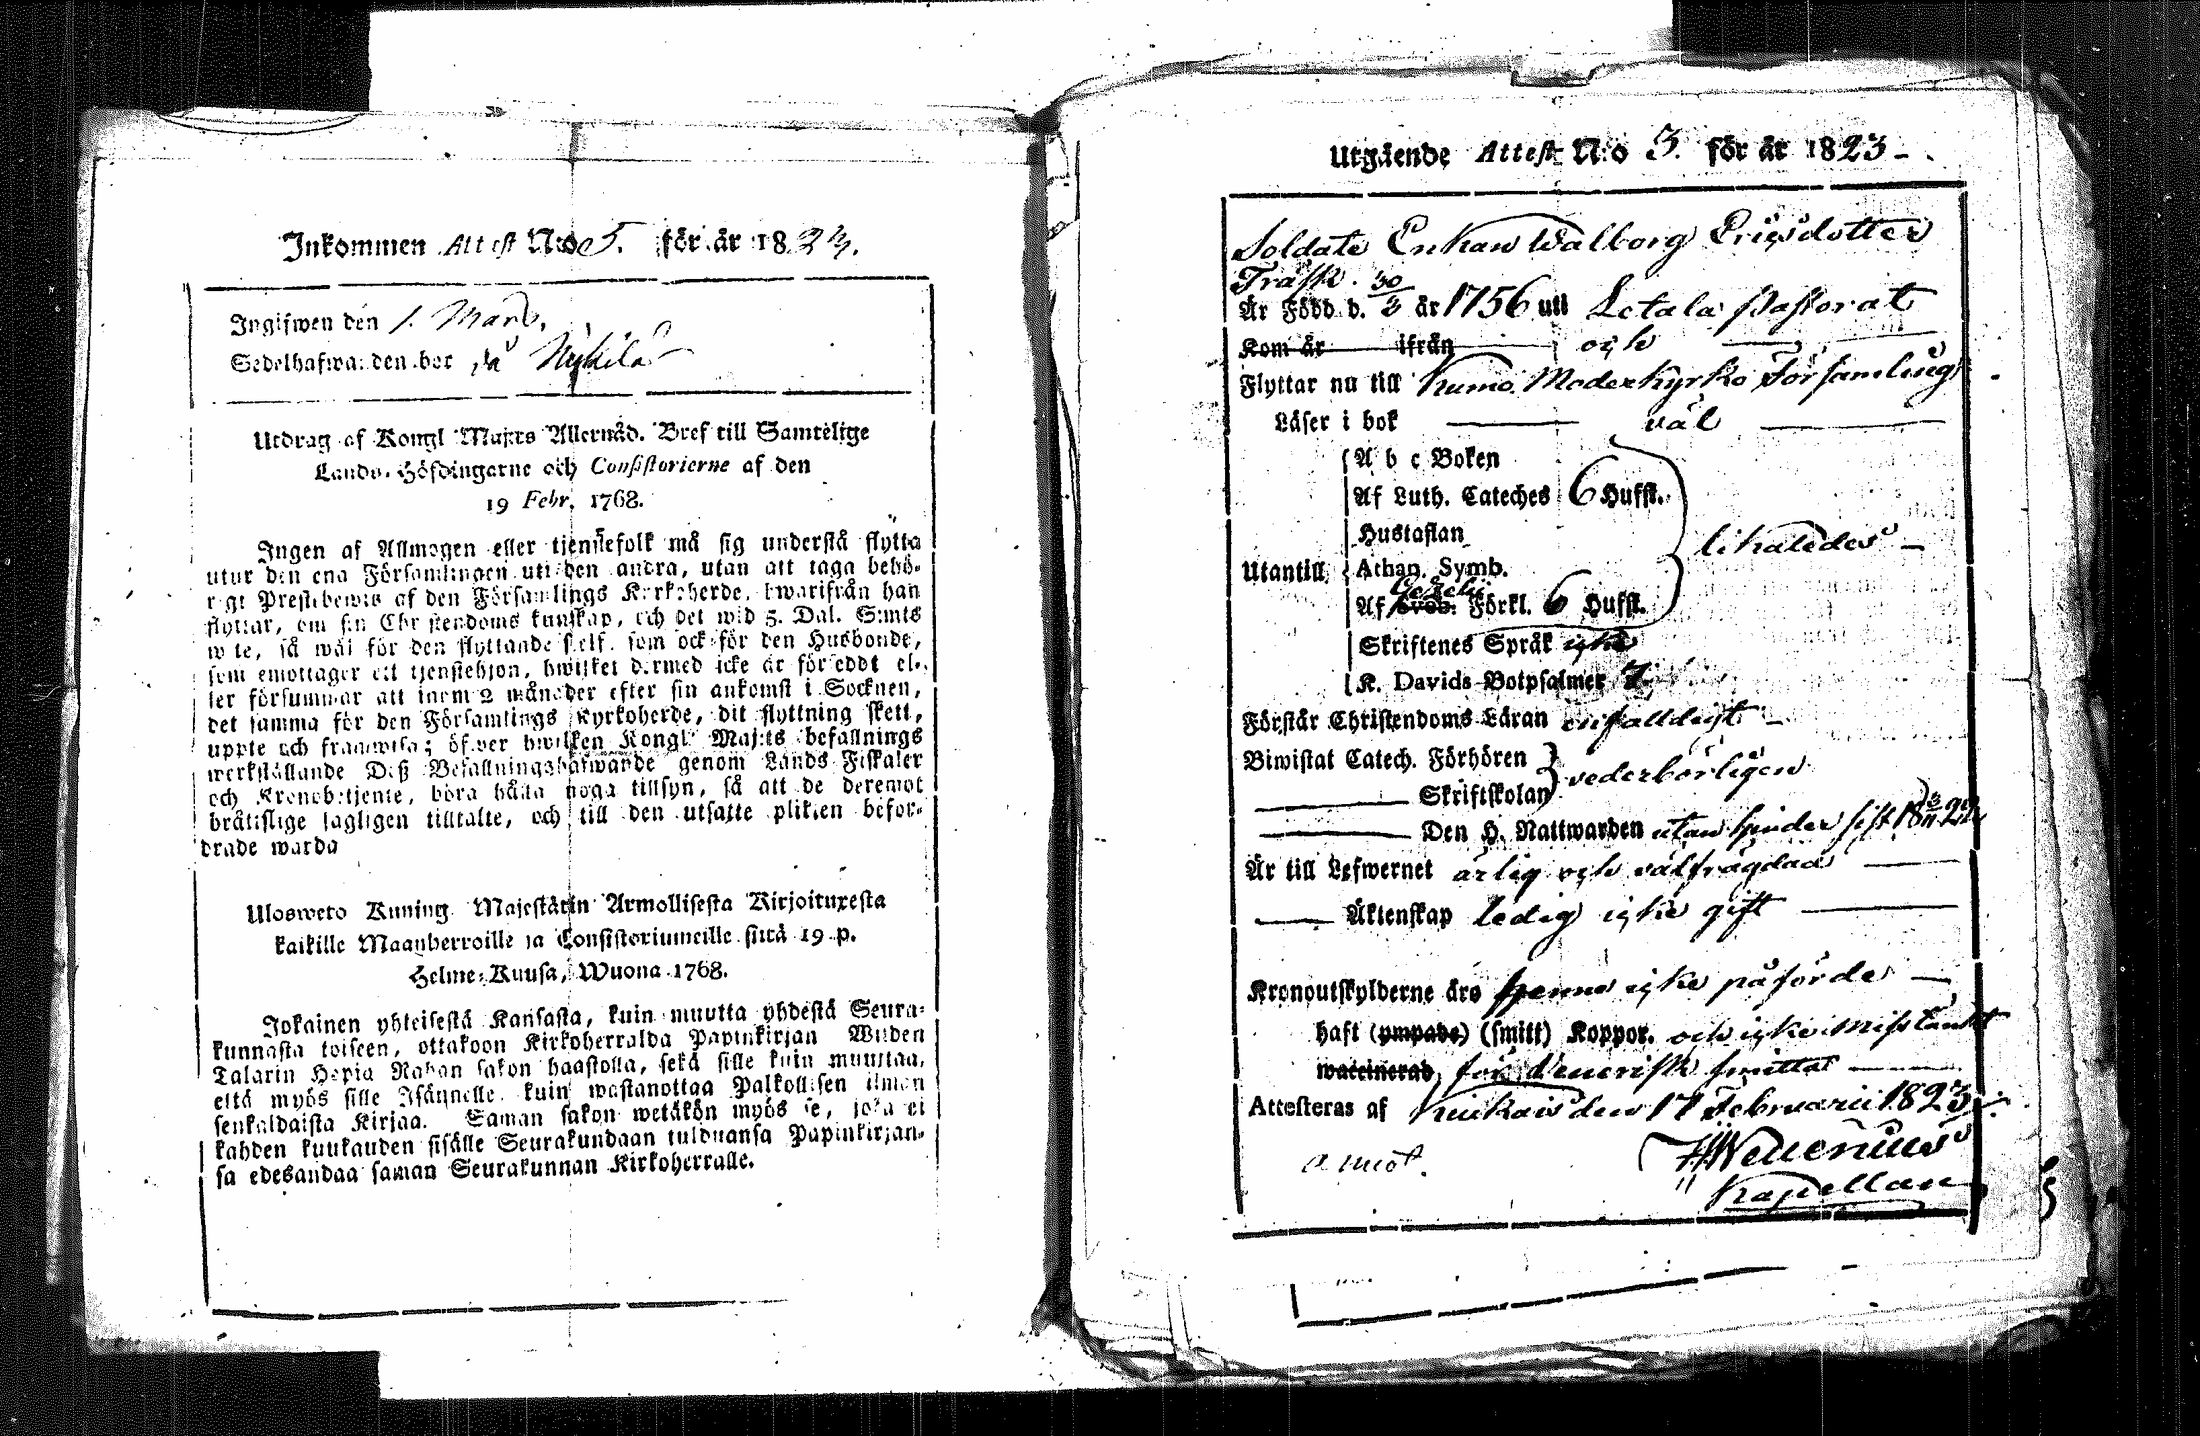 Inkommen Attest N:o 5. för år 1823.
Ingifwen den 1. Mars.
Sedelhafwanden bor på Nykilä
Utdrag af Kongl Majets Allernåd. Bref till Samtelige
Lands-Höfdingarne och Consistorierne af den
19 Febr. 1768.
Ingen af Allmogen eller tjenstefolk må sig understå flytta
utur den ena Församlingen uti den andra, utan att taga behö-
rigt Prestebewis af den Församlings Kyrkoherde, hwarifrån han
flyttar, om sin Christendoms kunskap, och det wid 5. Dal. S:mts
wite, så wäl för den flyttande sjelf, som ock för den Husbonde,
som emottager ett tjenstehjon, hwilket dermed icke är försedt el-
ler försummar att inom 2 månader efter sin ankomst i Socknen,
det samma för den Församlings Kyrkoherde, dit flyttning skett,
uppte och framwisa; öfwer hwilken Kongl Maj:ts befallnings
werkställande Deß Befallningshafwande genom Lands Fiskaler
och Kronobetjente, böra hålla noga tillsyn, så att de deremot
bråtislige lagligen tilltalte, och till den utsatte plikten befor-
drade warda
Ulosweto Kuning. Majestätin Armollisesta Kirjoituxesta
kaikille Maanherroille ja Consistoriumeille siitä 19 p.
Helme-Kuusa, Wuona 1768.
Jokainen yhteisestä Kansasta, kuin muutta yhdestä Seura-
kunnasta toiseen, ottakoon Kirkoherralda Papinkirjan Wiiden
Talarin Hopia Rahan sakon haastolla, sekä sille kuin muuttaa,
että myös sille Isännelle kuin wastanottaa Palkollisen ilman
senkaldaista Kirjaa. Saman sakon wetäkön myös se, joka ei
kahden kuukauden sisälle Seurakundaan tulduansa Papinkirjan-
sa edesandaa saman Seurakunnan Kirkoherralle.
Utgående Attest N:o 3. för år 1823
Soldate Enkan Walborg Ericsdotter
Träsk.
Är Född d. 30/3 år 1756 uti Letala Pastorat
Kom år ifrån och
Flyttar nu till Kumo Moderkyrko Församling
Läser i bok väl
A b c Boken
Af Luth. Cateches 6 Hufst.
Hustaflan
likaledes
Utantill Athan. Symb.
Gezelii
Af Sveb. Förkl. 6 Hufst.
Skriftenes Språk icke
K. Davids Botpsalmer 7
Förstår Christendoms Läran enfalldigt
Biwistat Catech. Förhören
vederbörligen
Skriftskolan
Den H. Nattwarden utan hinder sist
Är till Lefwernet ärlig och välfrägdad
Äktenskap ledig icke gift
Kronoutskylderne äro henne icke påförde
haft (ympade) (smitt) Koppor. och icke misstänkt
waccinerad, för Venerisk smitta
Attesteras af Kiukais den 17 Februarii 1823
Kapellan